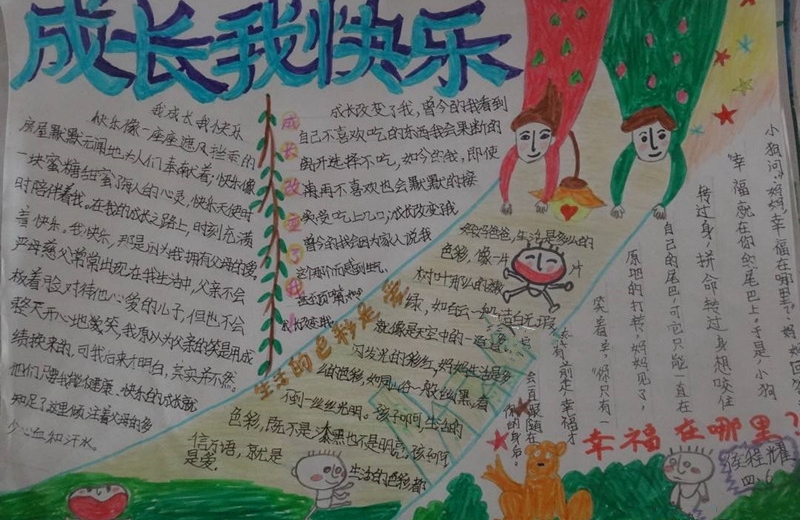 成长我快乐
我成长我快乐
快乐像一座座遮风挡雨的
房屋默默无闻地为人们奉献着;快乐像
一块蜜糖甜蜜了人的心灵,快乐天使时
时陪伴着我。在我的成长之路上,时刻充满
着快乐。我快乐,那是因为我拥有父母的爱。
严母慈父常常出现在我生活中,父亲不会
板着脸对待他心爱的儿子,但也不会
整天开心地微笑,我原以为父亲的笑是用成
绩换来的,可我后来才明白,其实并不然。
他们只要我能健康、快乐的成长就
知足了这里倾注着父母的多
少心血和汗水。
成长改变了我
成长改变了我,曾今的我看到
自己不喜欢吃的东西我会果断的
离开选择不吃,如今的我,即使
再不喜欢也会默默的接
受吃上几口;成长改变我
曾今的我会因为家人说我
成长改变我
生活的色彩是爱
妈妈爸爸,生活是多么的
色彩,像一片
树叶那么的嫩
绿,如白云一般洁白无瑕
就像是天空中的一道
闪发光的彩虹,妈妈生活是多
给的色彩,如同山谷一般丝丝黑,看
不到一丝丝光明。孩子啊,生活的
色彩,既不是漆黑也不是明亮,孩子啊
生活的色彩都
是爱。
幸福在哪里?
小狗问妈妈,幸福在哪里?妈妈回答
"幸福就在你的尾巴上。"于是,小狗
转过身,拼命转过身想咬住
自己的尾巴,可它只能一直在
原地的打转,妈妈见了,
笑着说:"你只有一
直往前走,幸福才
会一直跟随在
你的身后。
四、6